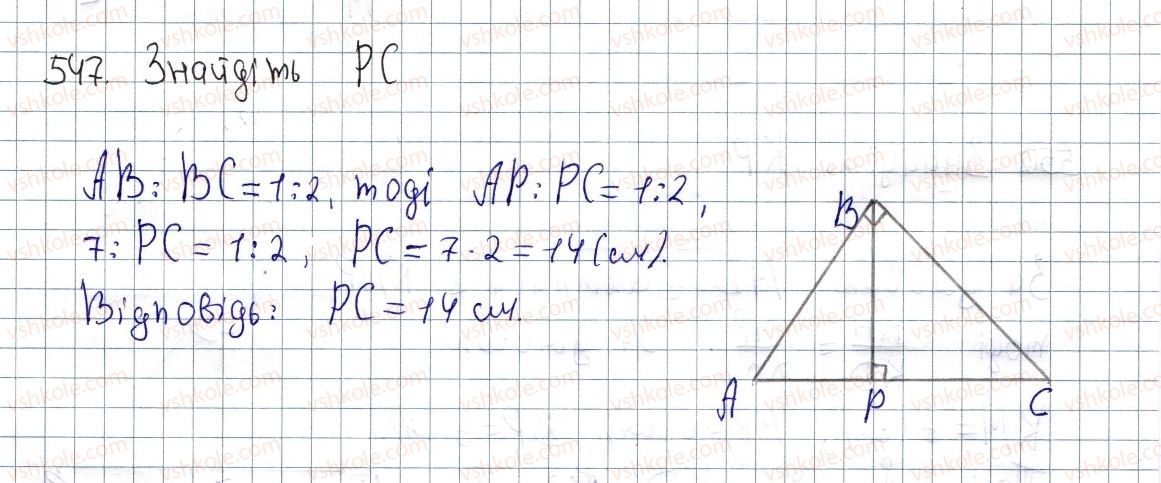 547. Знайдіть PC
AB : BC = 1 : 2, тоді AP : PC = 1 : 2,
7 : PC = 1 : 2, PC = 7 · 2 = 14 (см).
Відповідь: PC = 14 см.
B
A P C
vshkole.com